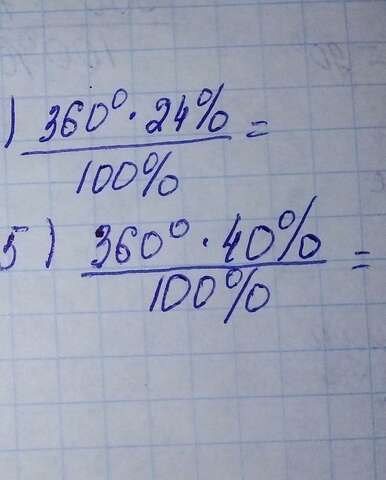 ) 360° · 24% =
100%
5) 360° · 40% =
100%